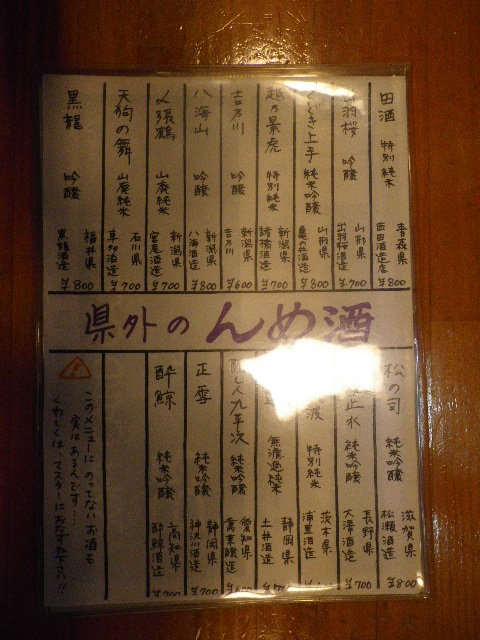 田酒 特別純米 青森県 西田酒造店 ¥800
羽桜 吟醸 山形県 出羽桜酒造 ¥700
くどき上手 純米吟醸 山形県 亀の井酒造 ¥800
越乃景虎 特別純米 新潟県 諸橋酒造 ¥700
吉乃川 吟醸 新潟県 吉乃川 ¥600
八海山 吟醸 新潟県 八海酒造 ¥800
〆張鶴 山廃純米 新潟県 宮尾酒造 ¥700
天狗の舞 山廃純米 石川県 車多酒造 ¥700
黒龍 吟醸 福井県 黒龍酒造 ¥800
県外のんめ酒
松の司 純米吟醸 滋賀県 松瀬酒造 ¥800
正水 純米吟醸 長野県 大澤酒造 ¥700
波 特別純米 茨木県 浦里酒造
無濾過純米 静岡県 土井酒造
醸し人九平次 純米吟醸 愛知県 萬乗醸造
正雪 純米吟醸 静岡県 神沢川酒造 ¥700
酔鯨 純米吟醸 高知県 酔鯨酒造 ¥700
このメニューにのってないお酒も
実はあるんです…
くわしくは、マスターにおたずね下さい!!